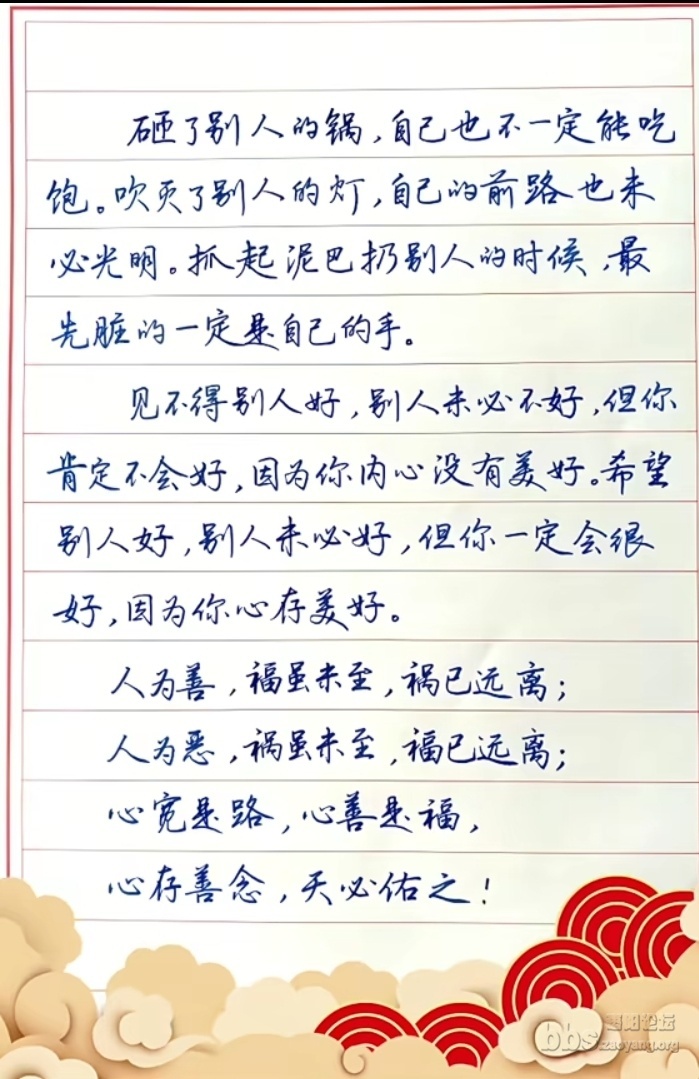 砸了别人的锅,自己也不一定能吃
饱。吹灭了别人的灯,自己的前路也未
必光明。抓起泥巴扔别人的时候,最
先脏的一定是自己的手。
见不得别人好,别人未必不好,但你
肯定不会好,因为你内心没有美好。希望
别人好,别人未必好,但你一定会很
好,因为你心存美好。
人为善,福虽未至,祸已远离;
人为恶,祸虽未至,福已远离;
心宽是路,心善是福,
心存善念,天必佑之!
bbs
论坛
zaoyang.org